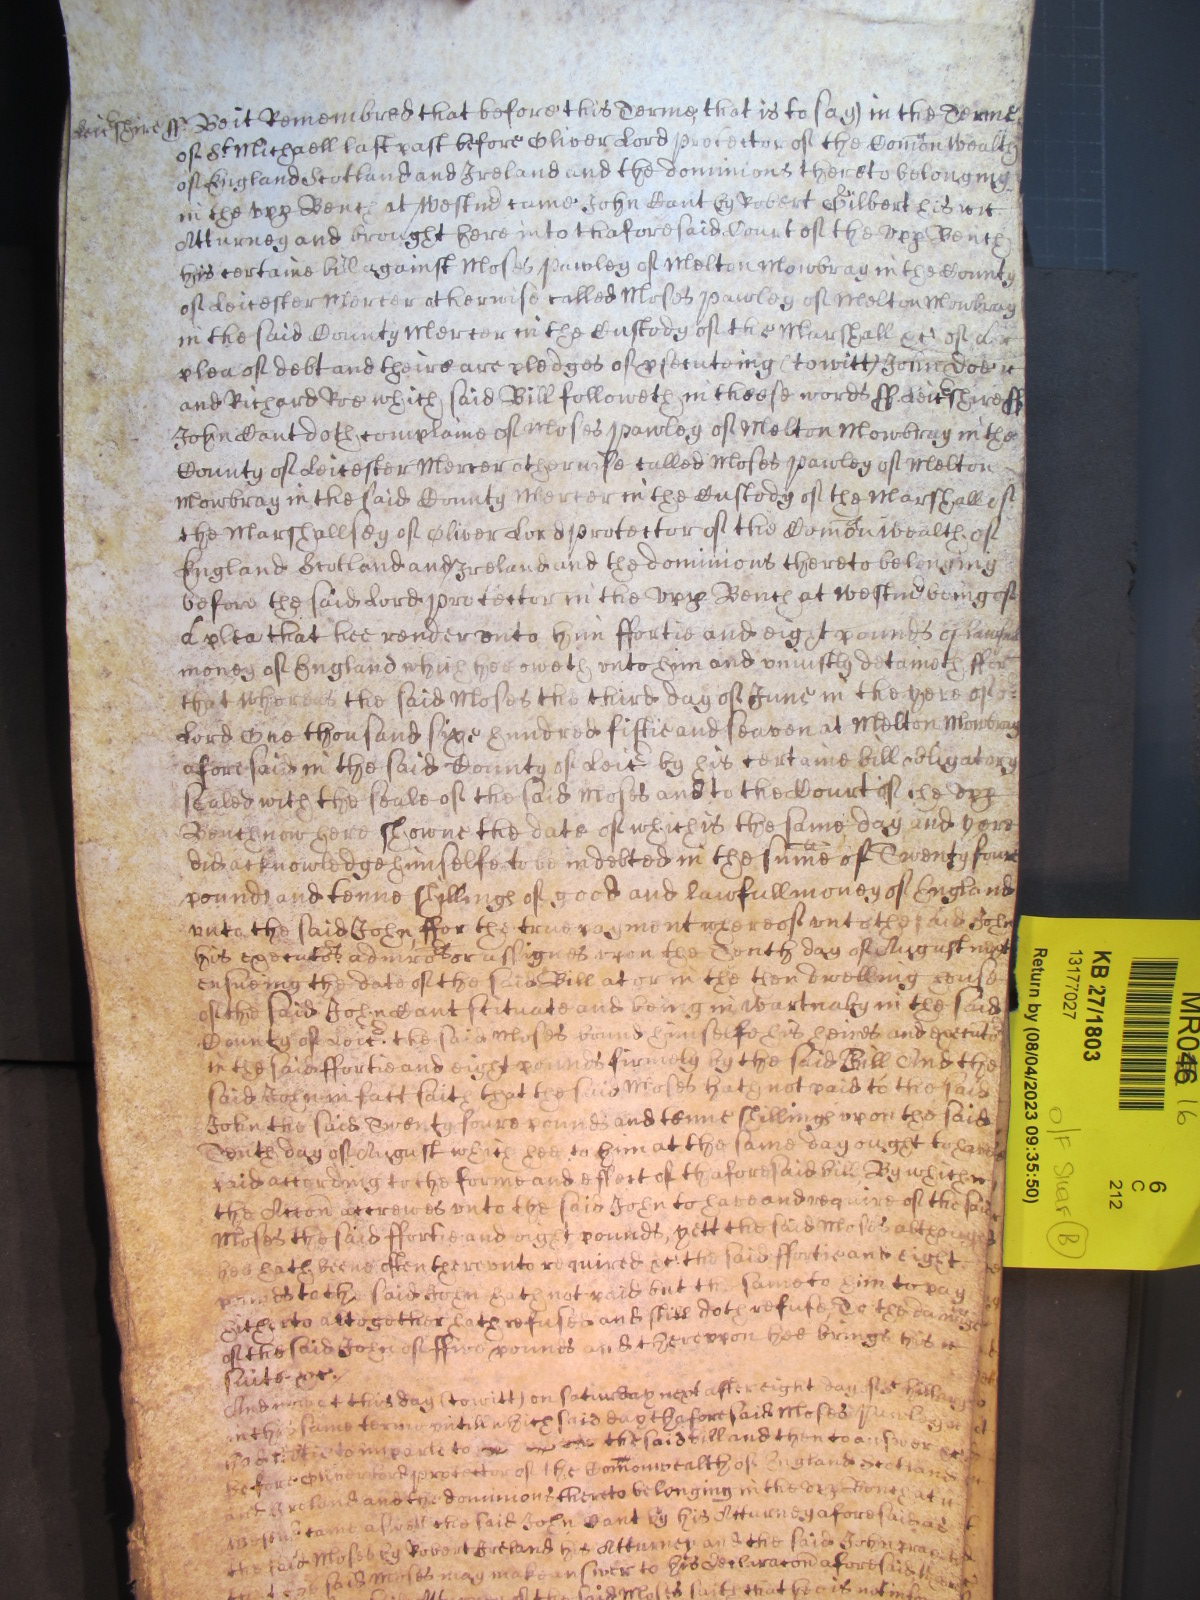 Leic̃shire ff Be it Remembred that before this Terme, that is to say in the Terme
of St Michaell last past before Oliver Lord protector of the Com̃onwealth
of England Scotland and Ireland and the dominions thereto belonging
in the upp Bench at Westm̃ came John Cant by Robert Gilbert his
Atturney and brought here into thaforesaid Court of the upp Bench
his certaine bill against Moses Pawley of Melton Mowbray in the County
of Leicester Mercer otherwise called Moses Pawley of Melton Mowbray
in the said County Mercer in the Custody of the Marshall &c of a
plea of debt and theire are pledges of psecuteing (to witt) John Doe
and Richard Roe which said Bill followeth in theese words ff Leic̃shire ff
John Cant doth complaine of Moses Pawley of Melton Mowbray in the
County of Leicester Mercer otherwise called Moses Pawley of Melton
Mowbray in the said County Mercer in the Custody of the Marshall of
the Marshallsey of Oliver Lord protector of the Com̃onwealth of
England Scotland and Ireland and the dominions thereto belonging
before the said Lord protector in the Upp Bench at Westm̃ being of
a plea that hee render unto him ffortie and eight pounds of lawfull
money of England which hee oweth unto him and uniustly detaineth ffor
that whereas the said Moses the third day of June in the yere of or
Lord One thousand sixe hundred fiftie and seaven at Melton Mowbray
aforesaid in the said County of Leic̃ by his certaine bill obligatory
sealed with the seale of the said Moses and to the Court of the upp
Bench now here showne the date of which is the same day and yere
did acknowledge himselfe to be indebted in the sum̃e of Twenty foure
pounds and tenne shillings of good and lawfull money of England
unto the said John, ffor the true payment whereof unto the said John
his executors admĩrs or assignes upon the Tenth day of August next
ensueing the date of the said Bill at or in the then dwelling house
of the said John Cant scituate and being in Wartnaby in the said
County of Leic̃ the said Moses bound himselfe his heires and executors
in the said ffortie and eight pounds firmely by the said Bill And the
said John in fact saith that the said Moses hath not paid to the said
John the said Twenty foure pounds and tenne shillings upon the said
Tenth day of August which hee to him at the same day ought to have
paid according to the forme and effect of thaforesaid bill By which
the Accon̄ accrewes unto the said John to have and require of the said
Moses the said ffortie and eight pounds, yett the said Moses although
hee hath beene often thereunto required &c the said ffortie and eight
pounds to the said John hath not paid but the same to him to pay
hitherto altogether hath refused and still doth refuse, To the damage
of the said John of ffive pounds and thereupon hee brings his
suite &c.
And now at this day (to witt) on Saturday next after eight dayes of Hillary
in this same terme untill which said day thaforesaid Moses Pawley
had licence to imparle to the said bill and then to answer &c
before Oliver Lord protector of the Com̃onwealth of England Scotland
and Ireland and the dominions thereto belonging in the upp Bench at
Westm̃ came aswell the said John Cant by his Atturney aforesaid as
the said Moses by Robert Breland his Atturney and the said John prayeth
that the said Moses may make answer to his declaracon aforesaid
Atturney of the said Moses saith that he is not
MR046 16
6
C
212
KB 27/1803
13177027
Return by (08/04/2023 09:35:50)
O/F Shelf B